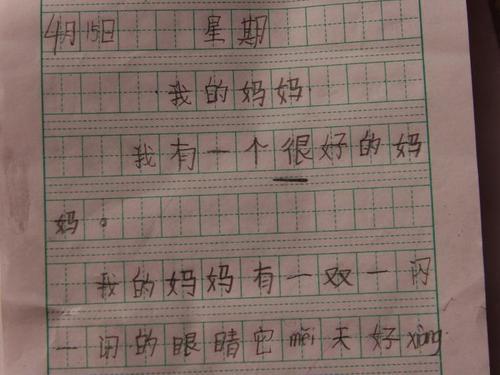 4月15日 星期
我的妈妈
我有一个很好的妈
妈。
我的妈妈有一双一闪
一闪的眼睛它měi天好xiàng